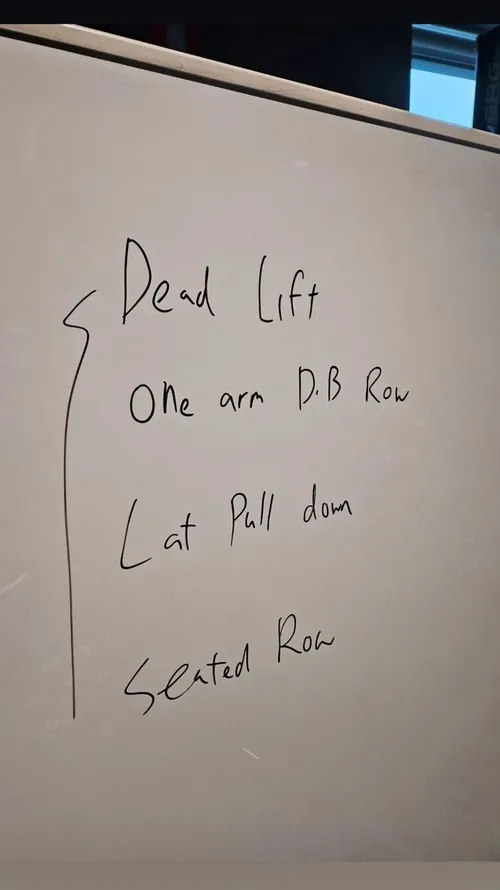 Dead Lift
One arm D.B Row
Lat Pull down
Seated Row